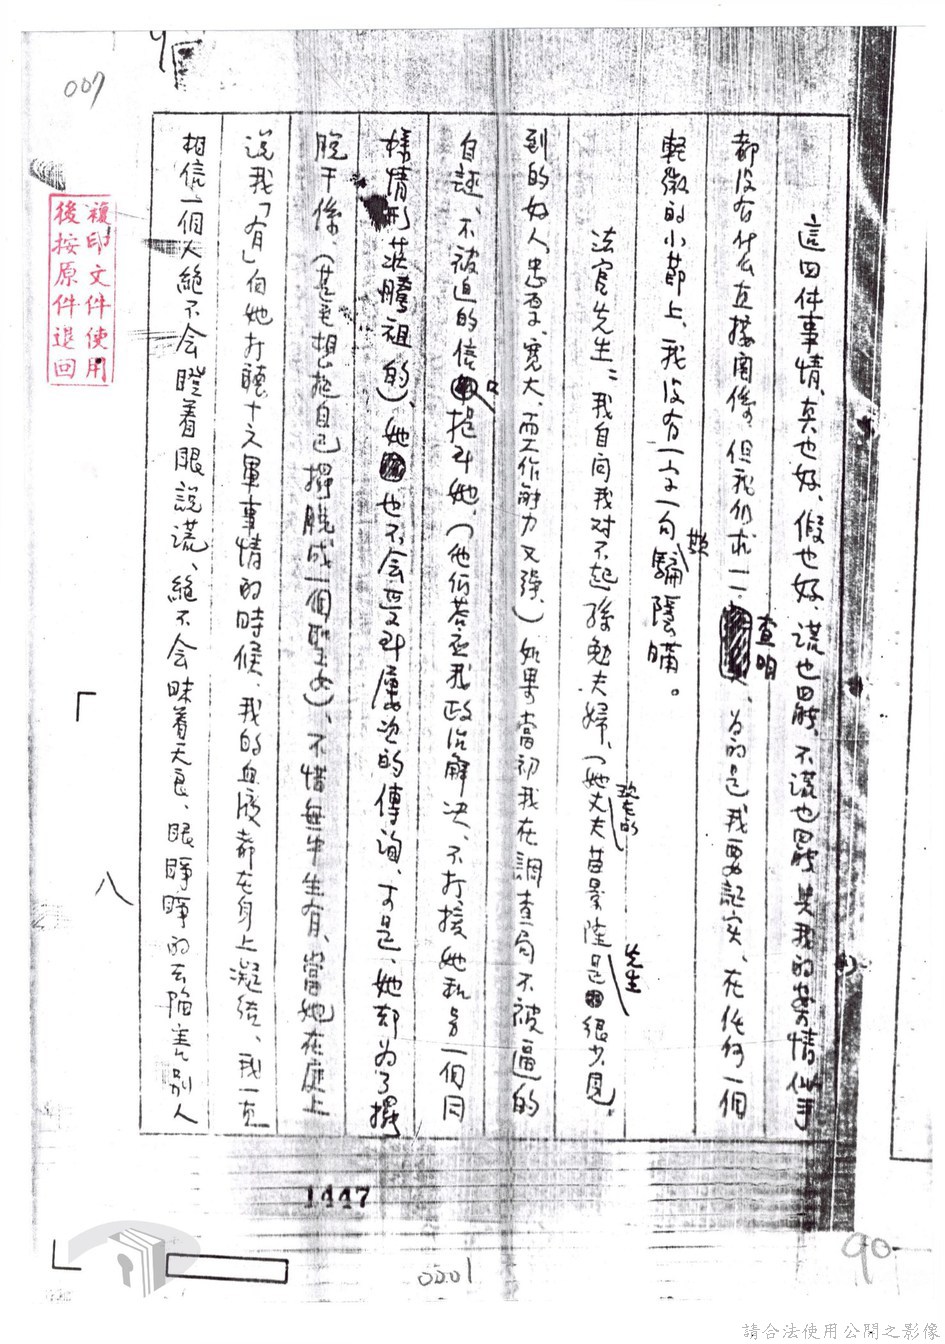 007
複印文件使用
後按原件退回
這四件事情、真也好、假也好、謊也罷、不謊也罷、與我的案情似乎
都没有什么直接関係、但我仍求一一查明、为的是我要証实、在任何一個
輕微的小節上、我没有一字一句欺騙隱瞞。
法官先生：我自问我对不起孫勉夫婦、（她的丈夫苗景隆先生是很少見
到的好人、忠厚、寬大、而工作能力又强、）如果當初我在調查局不被逼的
自誣、不被迫的信口捏到她、（他们答应我政治解决、不打擾她和另一個同
樣情形 騰祖的）、她也不会受到屢次的傳詢、可是、她却为了擺
脱干係、（甚至想把自己擺脱成一個聖女）、不惜無中生有、當她在庭上
説我「有」向她打聽十六軍事情的時候、我的血液都在身上凝结、我一直
相信、一個人絕不会瞪着眼説謊、絕不会昧着天良、眼睁睁的去陷害别人
八
1447
90
0001
請合法使用公開之影像